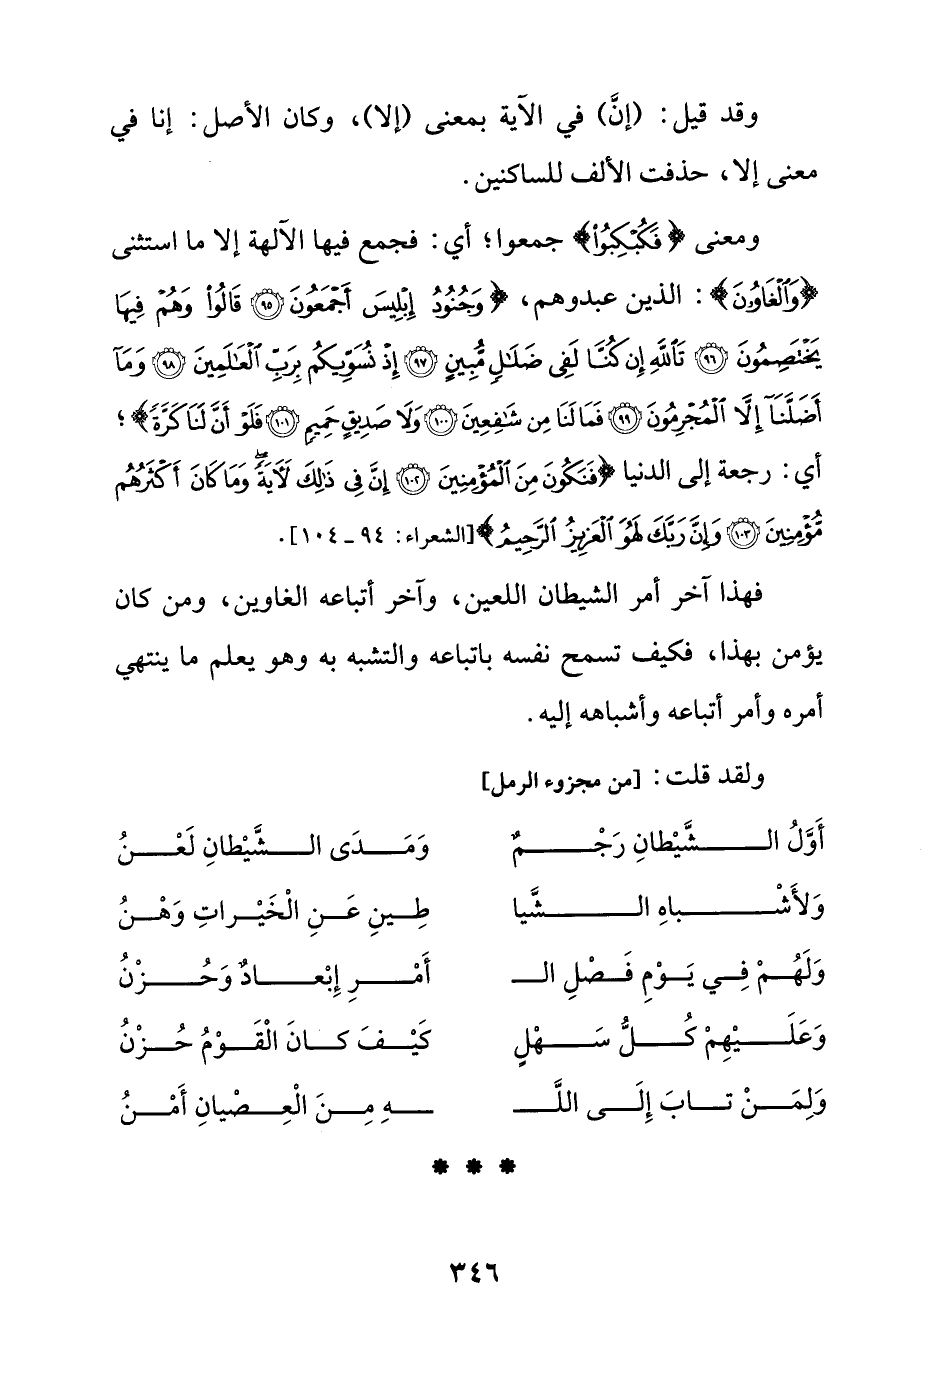 وقد قيل: (إنَّ) في الآية بمعنى (إلا)، وكان الأصل: إنا في
معنى إلا، حذفت الألف للساكنين.
ومعنى ﴿فَكُبْكِبُوا۟﴾ جمعوا؛ أي: فجمع فيها الآلهة إلا ما استثنى
﴿وَٱلْغَاوُۥنَ﴾: الذين عبدوهم، ﴿وَجُنُودُ إِبْلِيسَ أَجْمَعُونَ ۝٩٥ قَالُوا۟ وَهُمْ فِيهَا
يَخْتَصِمُونَ ۝٩٦ تَٱللَّهِ إِن كُنَّا لَفِى ضَلَـٰلٍ مُّبِينٍ ۝٩٧ إِذْ نُسَوِّيكُم بِرَبِّ ٱلْعَـٰلَمِينَ ۝٩٨ وَمَآ
أَضَلَّنَآ إِلَّا ٱلْمُجْرِمُونَ ۝٩٩ فَمَا لَنَا مِن شَـٰفِعِينَ ۝١٠٠ وَلَا صَدِيقٍ حَمِيمٍ ۝١٠١ فَلَوْ أَنَّ لَنَا كَرَّةً﴾؛
أي: رجعة إلى الدنيا ﴿فَنَكُونَ مِنَ ٱلْمُؤْمِنِينَ ۝١٠٢ إِنَّ فِى ذَٰلِكَ لَـَٔايَةً ۖ وَمَا كَانَ أَكْثَرُهُم
مُّؤْمِنِينَ ۝١٠٣ وَإِنَّ رَبَّكَ لَهُوَ ٱلْعَزِيزُ ٱلرَّحِيمُ﴾ [الشعراء: ٩٤ ـ ١٠٤].
فهذا آخر أمر الشيطان اللعين، وآخر أتباعه الغاوين، ومن كان
يؤمن بهذا، فكيف تسمح نفسه باتباعه والتشبه به وهو يعلم ما ينتهي
أمره وأمر أتباعه وأشباهه إليه.
ولقد قلت: [من مجزوء الرمل]
أَوَّلُ الـشَّيْطانِ رَجْـمٌ وَمَـدَى الـشَّيْطانِ لَعْـنُ
وَلأَشْـباهِ الـشَّيا طِـينِ عَـنِ الْخَيْـراتِ وَهْـنُ
وَلَهُـمْ فِـي يَـوْمِ فَـصْلِ الـ أَمْـرِ إِبْعـادٌ وَحُـزْنُ
وَعَلَـيْهِمْ كُـلُّ سَـهْلٍ كَيْـفَ كـانَ الْقَـوْمُ حُـزْنُ
وَلِمَـنْ تـابَ إِلَـى اللَّـ ـهِ مِـنَ الْعِـصْيانِ أَمْـنُ
* * *
٣٤٦